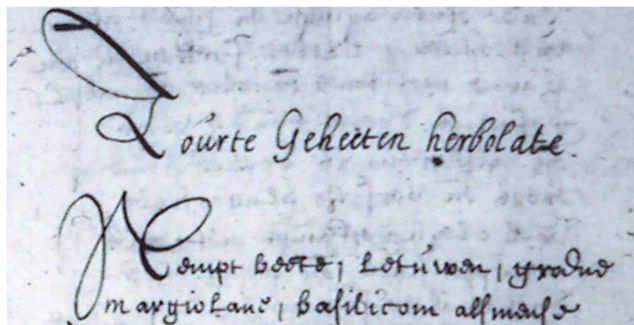 Tourte Geheeten herbolate.
Nempt beete, Letuwen, groene
margiolane, basilicom alsmense